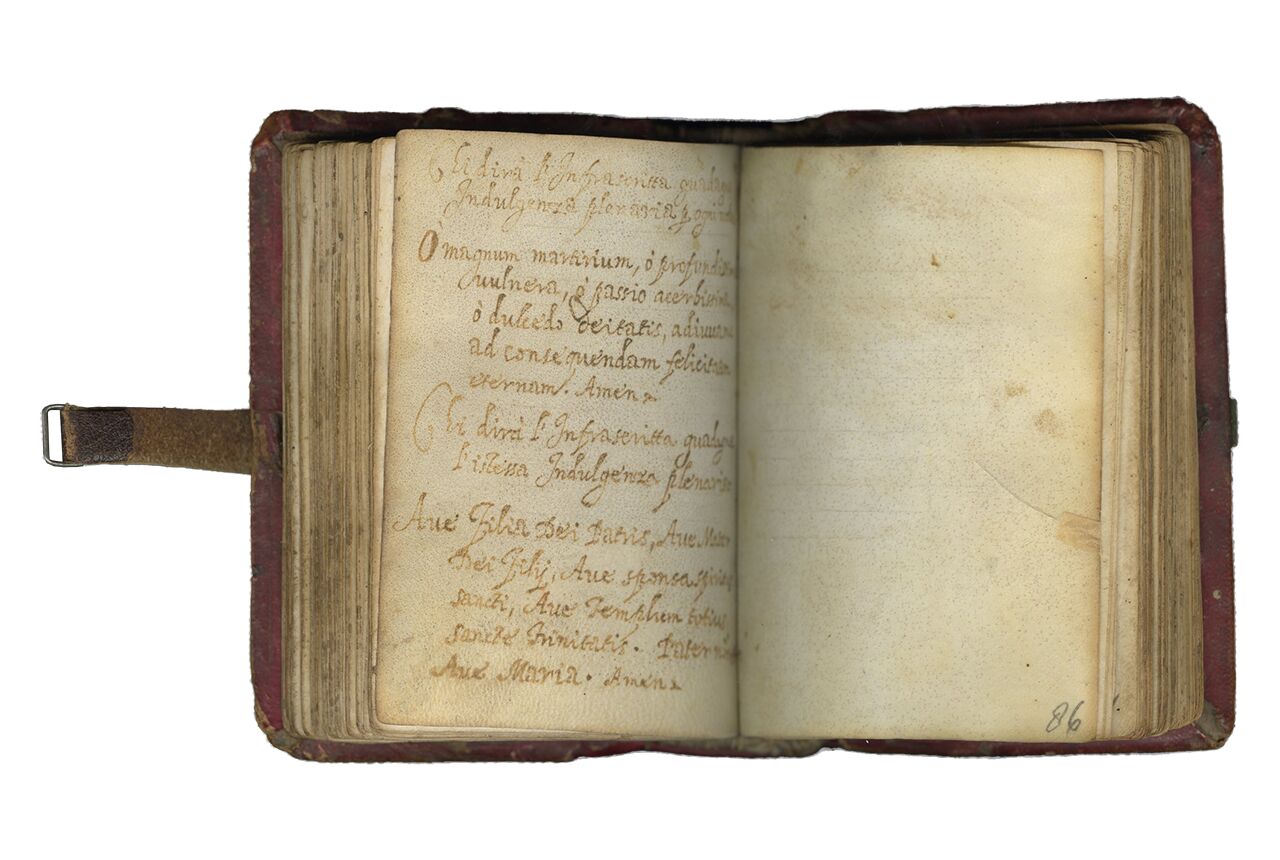 Chi dirà l'Infrascritta guadag
Indulgenza plenaria p ogni
O magnum martirium, ò profundiss
vulnera, ò passio acerbissima
ò dulcedo deitatis, adiuua
ad consequendam felicitatem
eternam. Amen
Chi dirà l'Infrascritta guadag
l'istessa Indulgenza plenaria
Aue Filia Dei Patris, Aue Mater
Dei Filij, Aue sponsa spirit
sancti, Aue Templum totius
sancte Trinitatis. Pater n
Aue Maria. Amen
86